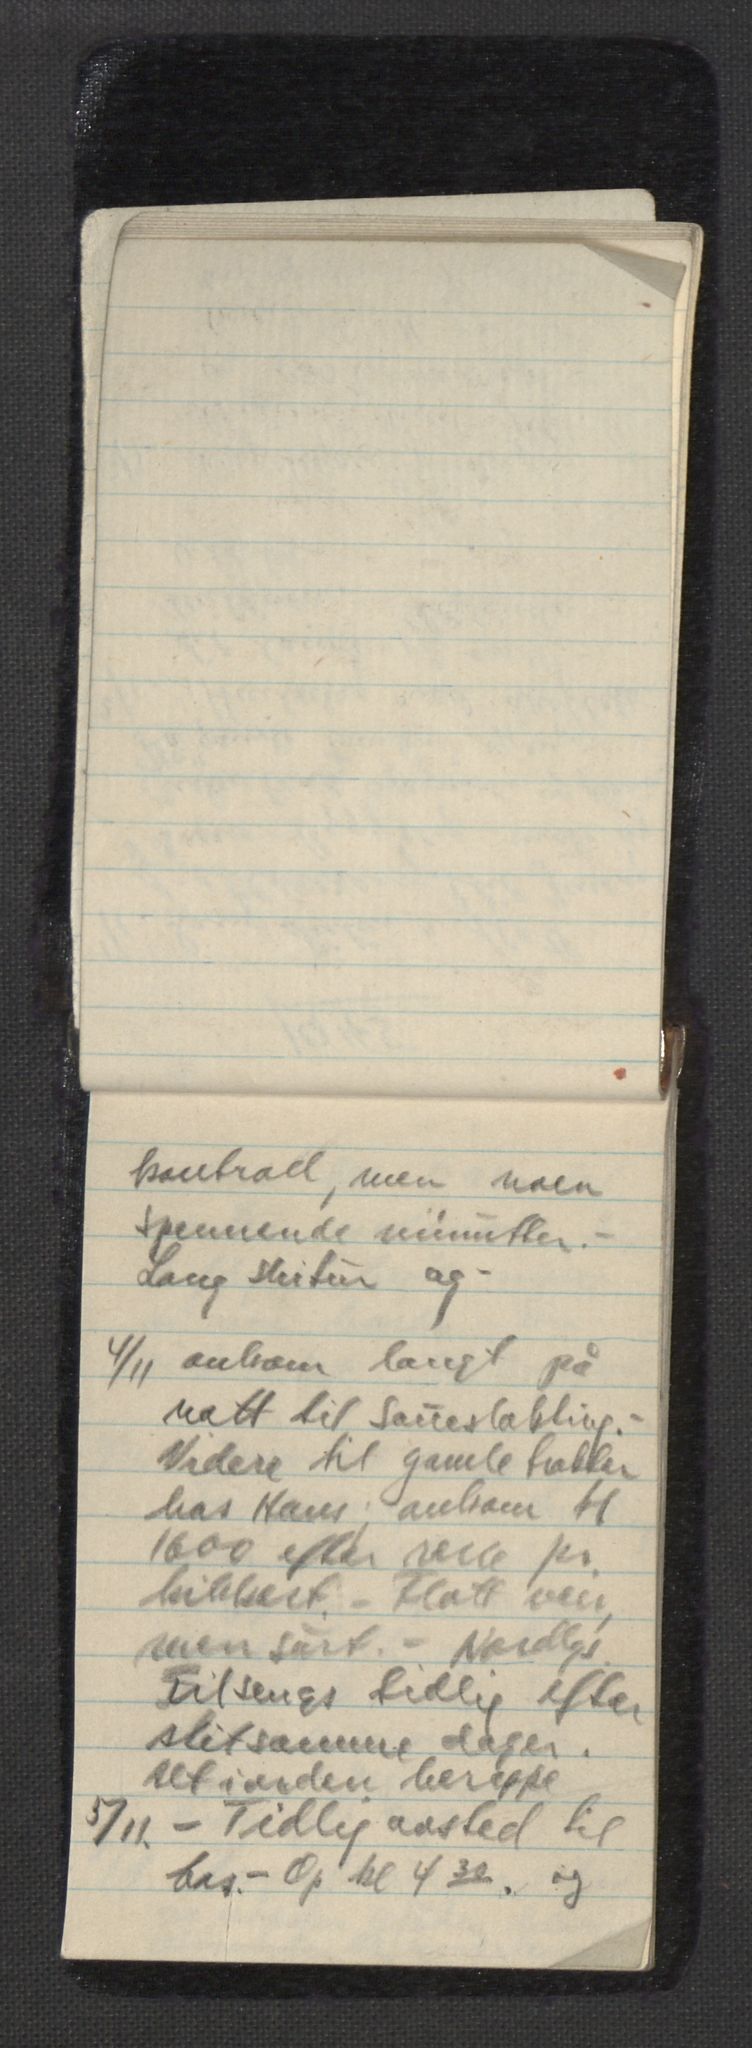 kontroll, men noen
spennende minutter.-
Lang skitur og -
4/11 ankom langt på
natt til Saueslakting.-
Videre til gamle trakter
hos Hans, ankom kl
1600 efter reise pr.
. - Flott vær,
men surt. - Nordlys.
Tilsengs tidlig efter
slitsomme dager.
Alt i orden her oppe
5/11. - Tidlig avsted til
bas.- Op kl 4 30. og